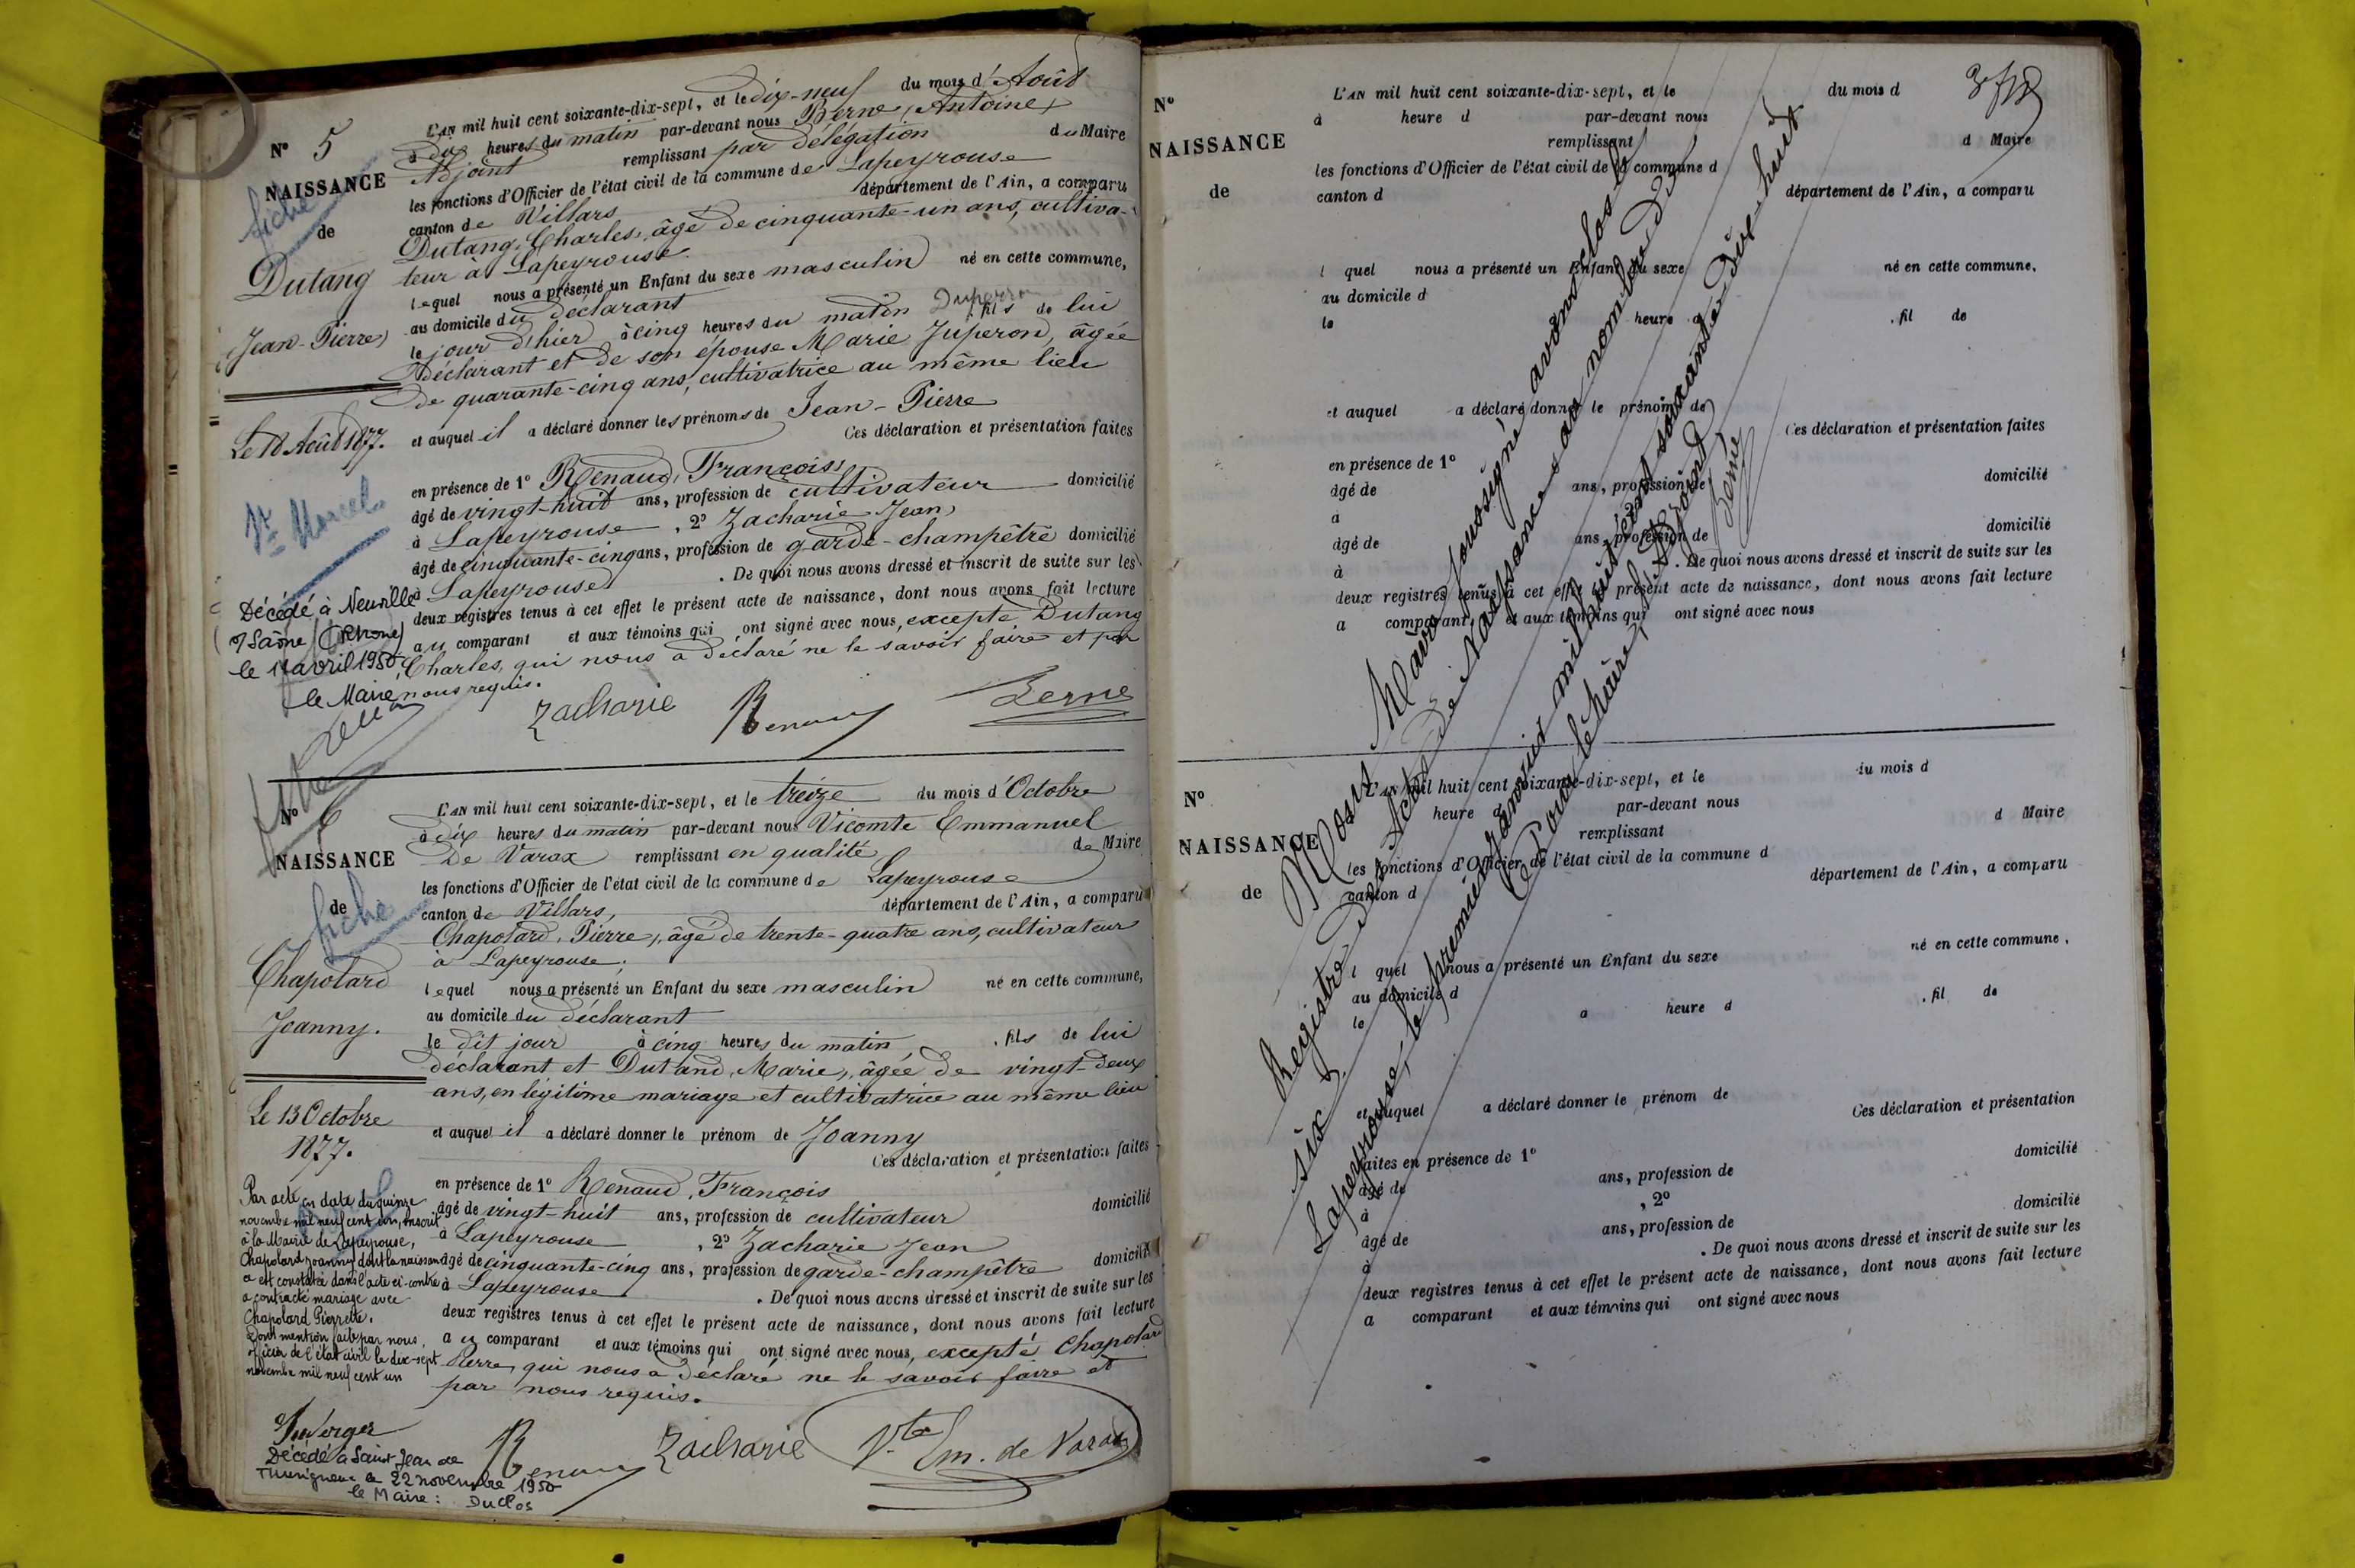 L'AN mil huit cent soixante-dix-sept, et le dix-neuf du mois d'Août
à dix heures du matin par-devant nous Berne, Antoine
Adjoint remplissant par délégation du Maire
les fonctions d'Officier de l'état civil de la commune de Lapeyrouse
canton de Villars département de l'Ain, a comparu
Dutang, Charles, âgé de cinquante-un ans, cultiva-
teur à Lapeyrouse.
lequel nous a présenté un Enfant du sexe masculin né en cette commune,
au domicile du déclarant
le jour d'hier à cinq heures du matin fils de lui
déclarant et de son épouse Marie Juperon, âgée
de quarante-cinq ans, cultivatrice au même lieu
et auquel il a déclaré donner les prénoms de Jean-Pierre
Ces déclaration et présentation faites
en présence de 1° Renaud, François
âgé de vingt-huit ans, profession de cultivateur domicilié
à Lapeyrouse, 2° Zacharie Jean
âgé de cinquante-cinq ans, profession de garde-champêtre domicilié
à Lapeyrouse. De quoi nous avons dressé et inscrit de suite sur les
deux registres tenus à cet effet le présent acte de naissance, dont nous avons fait lecture
au comparant et aux témoins qui ont signé avec nous, excepté Dutang
Charles, qui nous a déclaré ne le savoir faire et par
nous requis.
Zacharie Renaud Berne
N° 5
NAISSANCE
fiche
de
Dutang
Jean-Pierre
Le 18 Août 1877.
Décédé à Neuville
s/ Saône (Rhône)
le 11 avril 1950
le Maire
N° 6
NAISSANCE
de
fiche
Chapolard
Joanny.
Le 13 Octobre
1877.
L'AN mil huit cent soixante-dix-sept, et le treize du mois d'Octobre
à dix heures du matin par-devant nous Vicomte Emmanuel
De Varax remplissant en qualité de Maire
les fonctions d'Officier de l'état civil de la commune de Lapeyrouse
canton de Villars, département de l'Ain, a comparu
Chapolard, Pierre, âgé de trente-quatre ans, cultivateur
à Lapeyrouse;
lequel nous a présenté un Enfant du sexe masculin né en cette commune,
au domicile du déclarant
le dit jour à cinq heures du matin, fils de lui
déclarant et Dutand, Marie, âgée de vingt-deux
ans, en légitime mariage et cultivatrice au même lieu
et auquel il a déclaré donner le prénom de Joanny
Ces déclaration et présentation faites
en présence de 1° Renaud, François
âgé de vingt-huit ans, profession de cultivateur domicilié
à Lapeyrouse, 2° Zacharie Jean
âgé de cinquante-cinq ans, profession de garde-champêtre domicilié
à Lapeyrouse. De quoi nous avons dressé et inscrit de suite sur les
deux registres tenus à cet effet le présent acte de naissance, dont nous avons fait lecture
au comparant et aux témoins qui ont signé avec nous, excepté Chapolard
Pierre, qui nous a déclaré ne le savoir faire et
par nous requis.
Renaud Zacharie Vte Em. de Varax
Par acte en date du quinze
novembre mil neuf cent un, inscrit
à la Mairie de Lapeyrouse,
Chapolard Joanny dont la naissance
est constatée dans l'acte ci-contre
a contracté mariage avec
Chapolard Pierrette.
Dont mention faite par nous,
officier de l'état civil le dix-sept
novembre mil neuf cent un
Décédé à Saint-Jean de
Thurigneux le 22 novembre 1950
le Maire : Duclos
N°
NAISSANCE
de
L'AN mil huit cent soixante-dix-sept, et le du mois d
à heure d par-devant nous
remplissant d Maire
les fonctions d'Officier de l'état civil de la commune d
canton d département de l'Ain, a comparu
l quel nous a présenté un Enfant du sexe né en cette commune,
au domicile d
le heure d , fil de
et auquel a déclaré donner le prénom de
Ces déclaration et présentation faites
en présence de 1°
âgé de ans, profession de domicilié
à , 2°
âgé de ans, profession de domicilié
à . De quoi nous avons dressé et inscrit de suite sur les
deux registres tenus à cet effet le présent acte de naissance, dont nous avons fait lecture
a comparant et aux témoins qui ont signé avec nous
Nous Maire soussigné avons clos le
Registre des Actes de Naissances au nombre de
six
Lapeyrouse, le premier janvier mil huit cent soixante-dix-huit
Pour le Maire, l'Adjoint
Berne
N°
NAISSANCE
de
L'AN mil huit cent soixante-dix-sept, et le du mois d
heure d par-devant nous
remplissant d Maire
les fonctions d'Officier de l'état civil de la commune d
canton d département de l'Ain, a comparu
l quel nous a présenté un Enfant du sexe né en cette commune,
au domicile d
le a heure d , fil de
et auquel a déclaré donner le prénom de
Ces déclaration et présentation
faites en présence de 1°
âgé de ans, profession de domicilié
à , 2°
âgé de ans, profession de domicilié
à . De quoi nous avons dressé et inscrit de suite sur les
deux registres tenus à cet effet le présent acte de naissance, dont nous avons fait lecture
a comparant et aux témoins qui ont signé avec nous